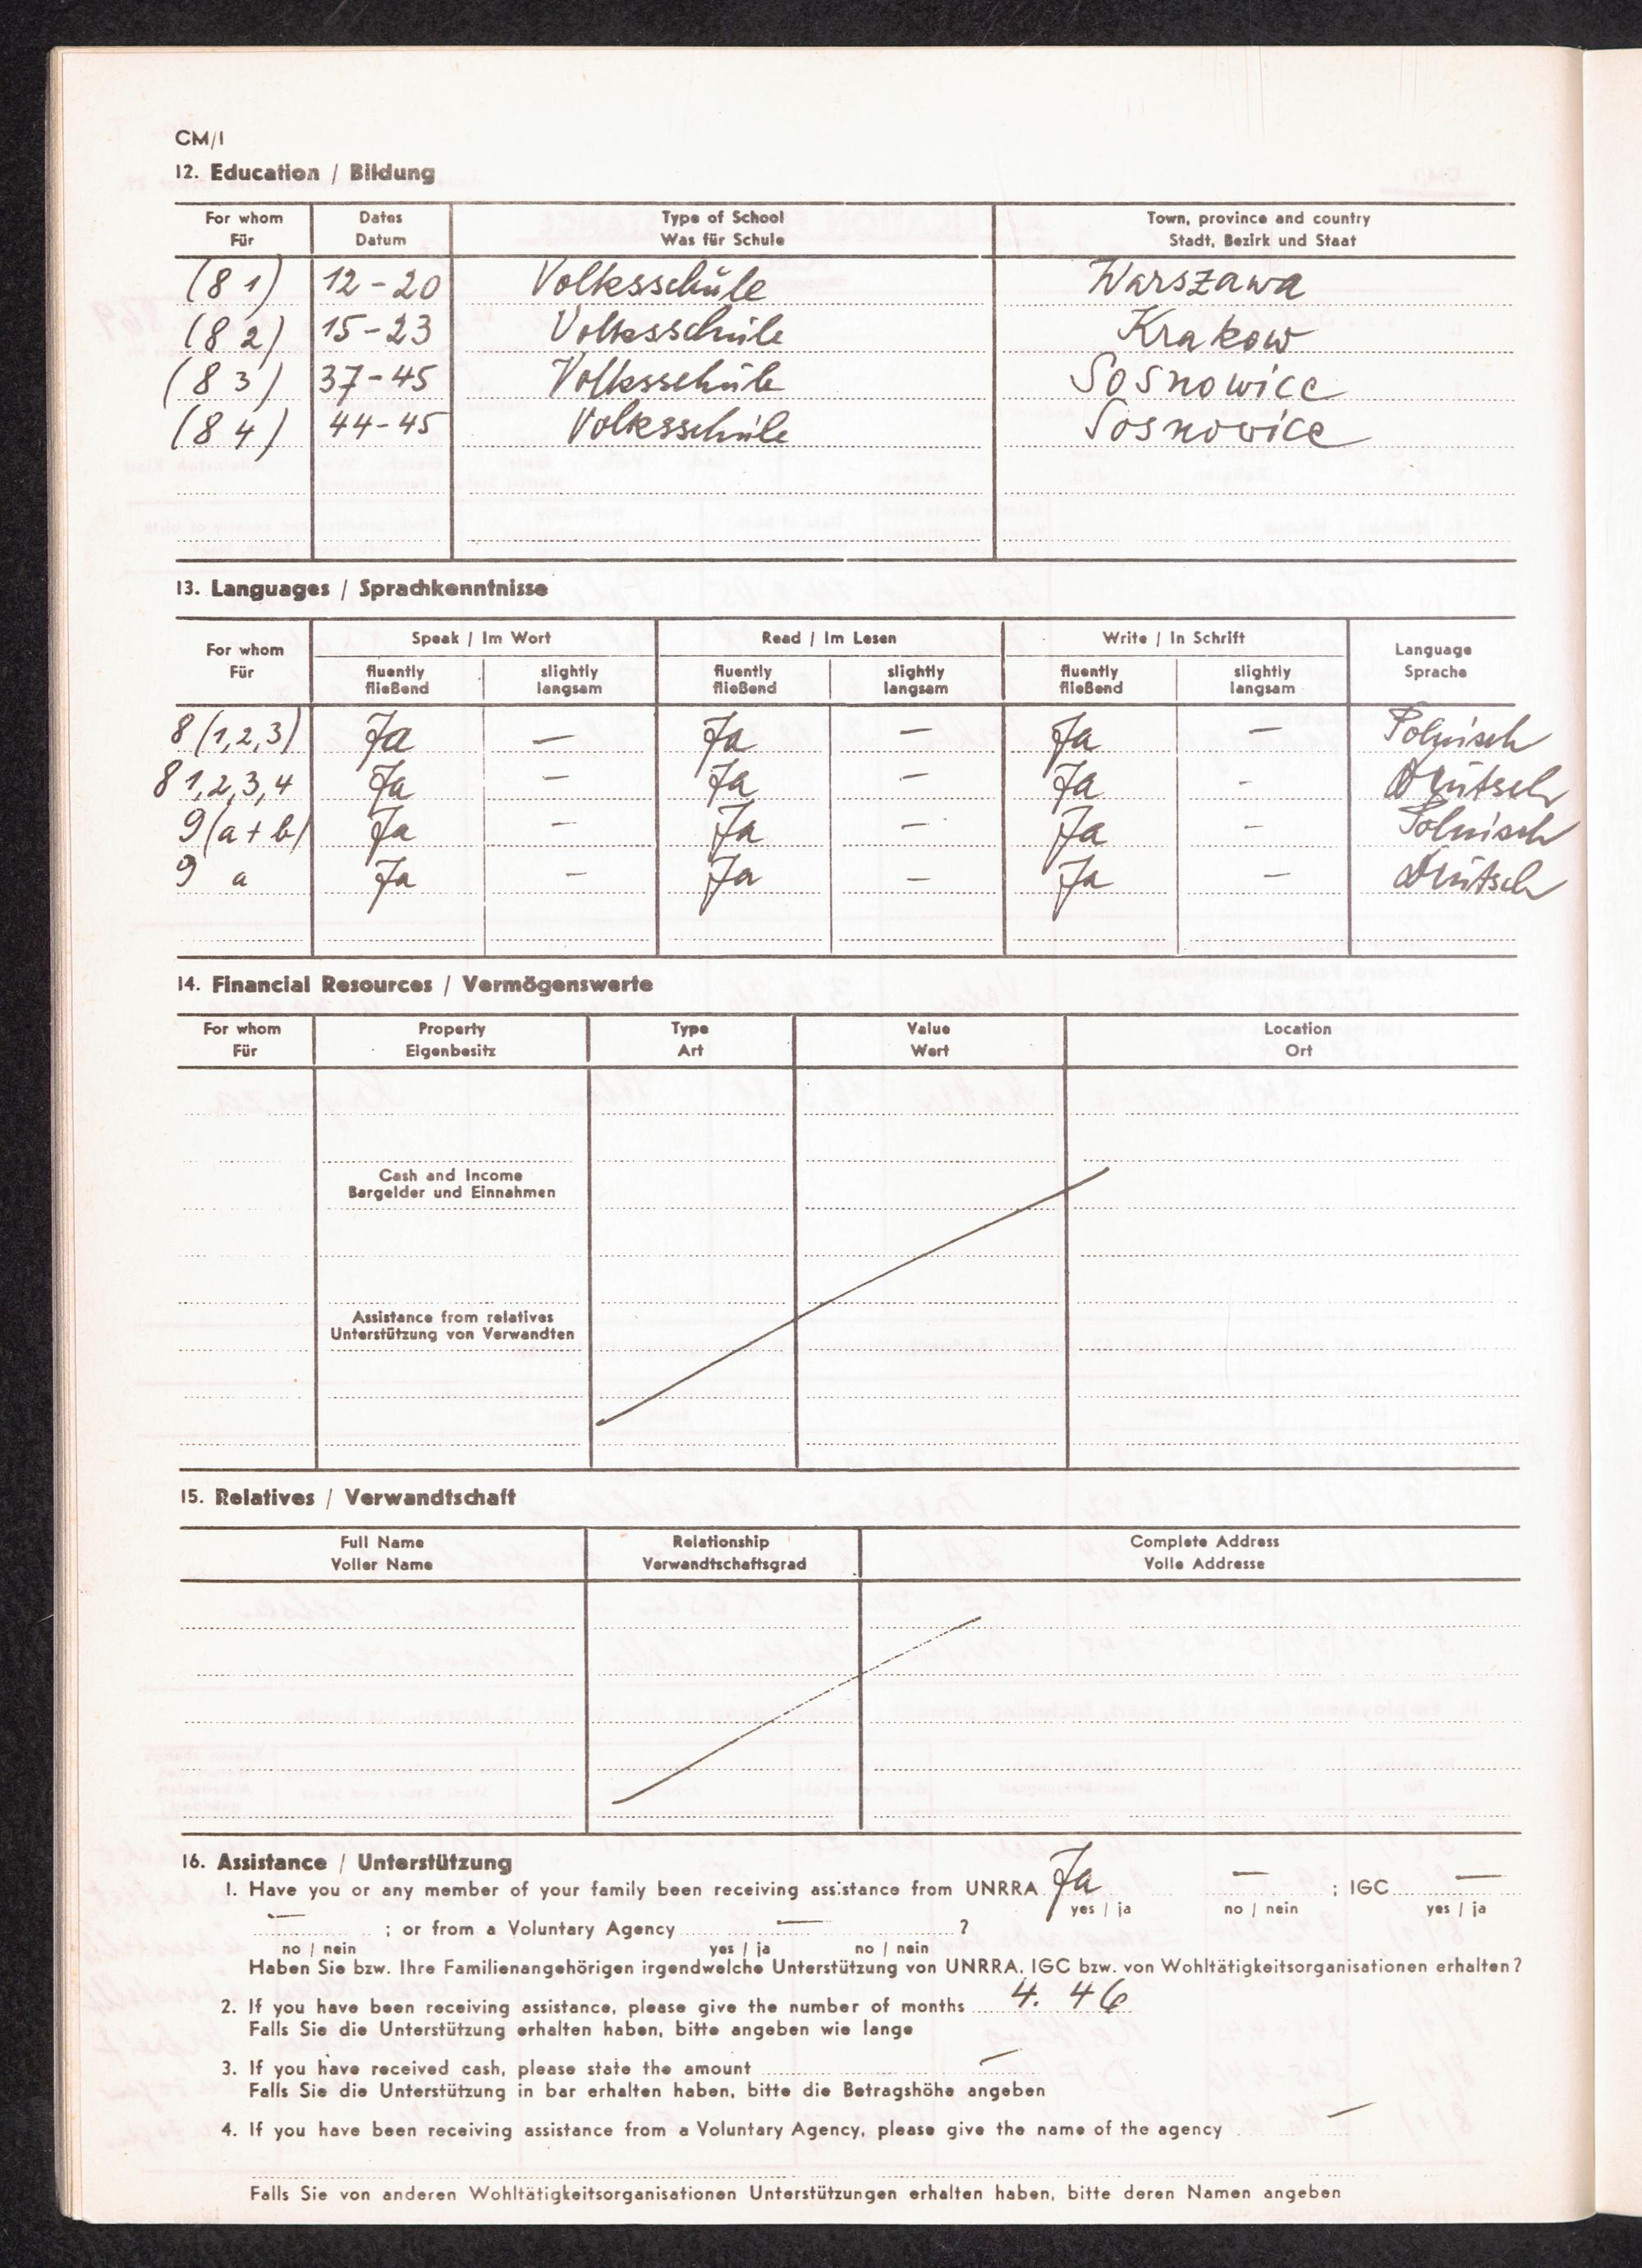 CM/I
12. Education / Bildung
For whom Dates Type of School Town, province and country
Für Datum Was für Schule Stadt, Bezirk und Staat
(8 1) 12-20 Volksschule Warszawa
(8 2) 15-23 Volksschule Krakow
(8 3) 37-45 Volksschule Sosnowice
(8 4) 44-45 Volksschule Sosnovice
13. Languages / Sprachkenntnisse
For whom Speak / Im Wort Read / Im Lesen Write / In Schrift Language
Für fluently slightly fluently slightly fluently slightly Sprache
fließend langsam fließend langsam fließend langsam
8 (1,2,3) Ja — Ja — Ja — Polnisch
8 1,2,3,4 Ja — Ja — Ja - Deutsch
9 (a + b) Ja — Ja — Ja — Polnisch
9 a Ja — Ja — Ja — Deutsch
14. Financial Resources / Vermögenswerte
For whom Property Type Value Location
Für Eigenbesitz Art Wert Ort
Cash and Income
Bargelder und Einnahmen
Assistance from relatives
Unterstützung von Verwandten
15. Relatives / Verwandtschaft
Full Name Relationship Complete Address
Voller Name Verwandtschaftsgrad Volle Addresse
16. Assistance / Unterstützung
1. Have you or any member of your family been receiving assistance from UNRRA Ja — ; IGC —
yes / ja no / nein yes / ja
— ; or from a Voluntary Agency — ?
no / nein yes / ja no / nein
Haben Sie bzw. Ihre Familienangehörigen irgendwelche Unterstützung von UNRRA, IGC bzw. von Wohltätigkeitsorganisationen erhalten?
2. If you have been receiving assistance, please give the number of months 4. 46
Falls Sie die Unterstützung erhalten haben, bitte angeben wie lange
3. If you have received cash, please state the amount —
Falls Sie die Unterstützung in bar erhalten haben, bitte die Betragshöhe angeben
4. If you have been receiving assistance from a Voluntary Agency, please give the name of the agency —
Falls Sie von anderen Wohltätigkeitsorganisationen Unterstützungen erhalten haben, bitte deren Namen angeben